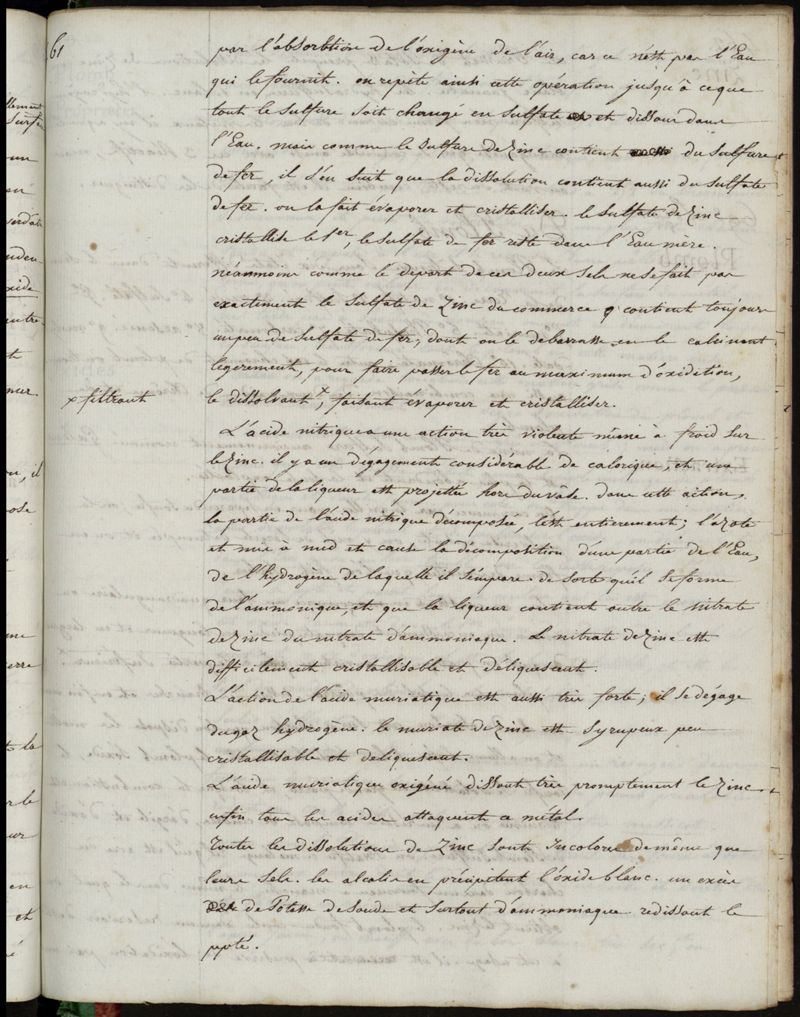 61
par l'absorbtion de l'oxigène de l'air, car ce n'est pas l'Eau
qui le fournit. on repète ainsi cette opération jusqu'à ce que
tout le sulfure soit changé en sulfate et dissous dans
l'Eau. mais comme le sulfure de Zinc contient du sulfure
de fer, il s'en suit que la dissolution contient aussi du sulfate
de fer. on la fait évaporer et cristalliser. le sulfate de Zinc
cristallise le 1er, le sulfate de fer reste dans l'Eau mère.
néanmoins comme le départ de ces deux sels ne se fait pas
exactement le sulfate de Zinc du commerce contient toujours
un peu de sulfate de fer, dont on le debarrasse en le calcinant
legèrement, pour faire passer le fer au maximum d'oxidation,
x filtrant
le dissolvant x, faisant évaporer et cristalliser.
L'acide nitrique a une action très violente même à froid sur
le Zinc. il y a un dégagement considérable de calorique, et une
partie de la liqueur est projettée hors du vase. dans cette action,
la partie de l'acide nitrique décomposée, l'est entierement; l'azote
est mis à nud et cause la décomposition d'une partie de l'Eau,
de l'hydrogène de laquelle il s'empare. de sorte qu'il se forme
de l'ammoniaque, et que la liqueur contient outre le nitrate
de Zinc du nitrate d'ammoniaque. Le nitrate de Zinc est
difficilement cristallisable et déliquescent.
L'action de l'acide muriatique est aussi très forte; il se dégage
du gaz hydrogène. le muriate de Zinc est syrupeux peu
cristallisable et deliquescent.
L'acide muriatique oxigéné dissout très promptement le Zinc.
enfin tous les acides attaquent ce métal.
Toutes les dissolutions de Zinc sont incolores de même que
leurs sels. les alcalis en précipitent l'oxide blanc. un excès
de Potasse de soude et surtout d'ammoniaque redissout le
ppté.